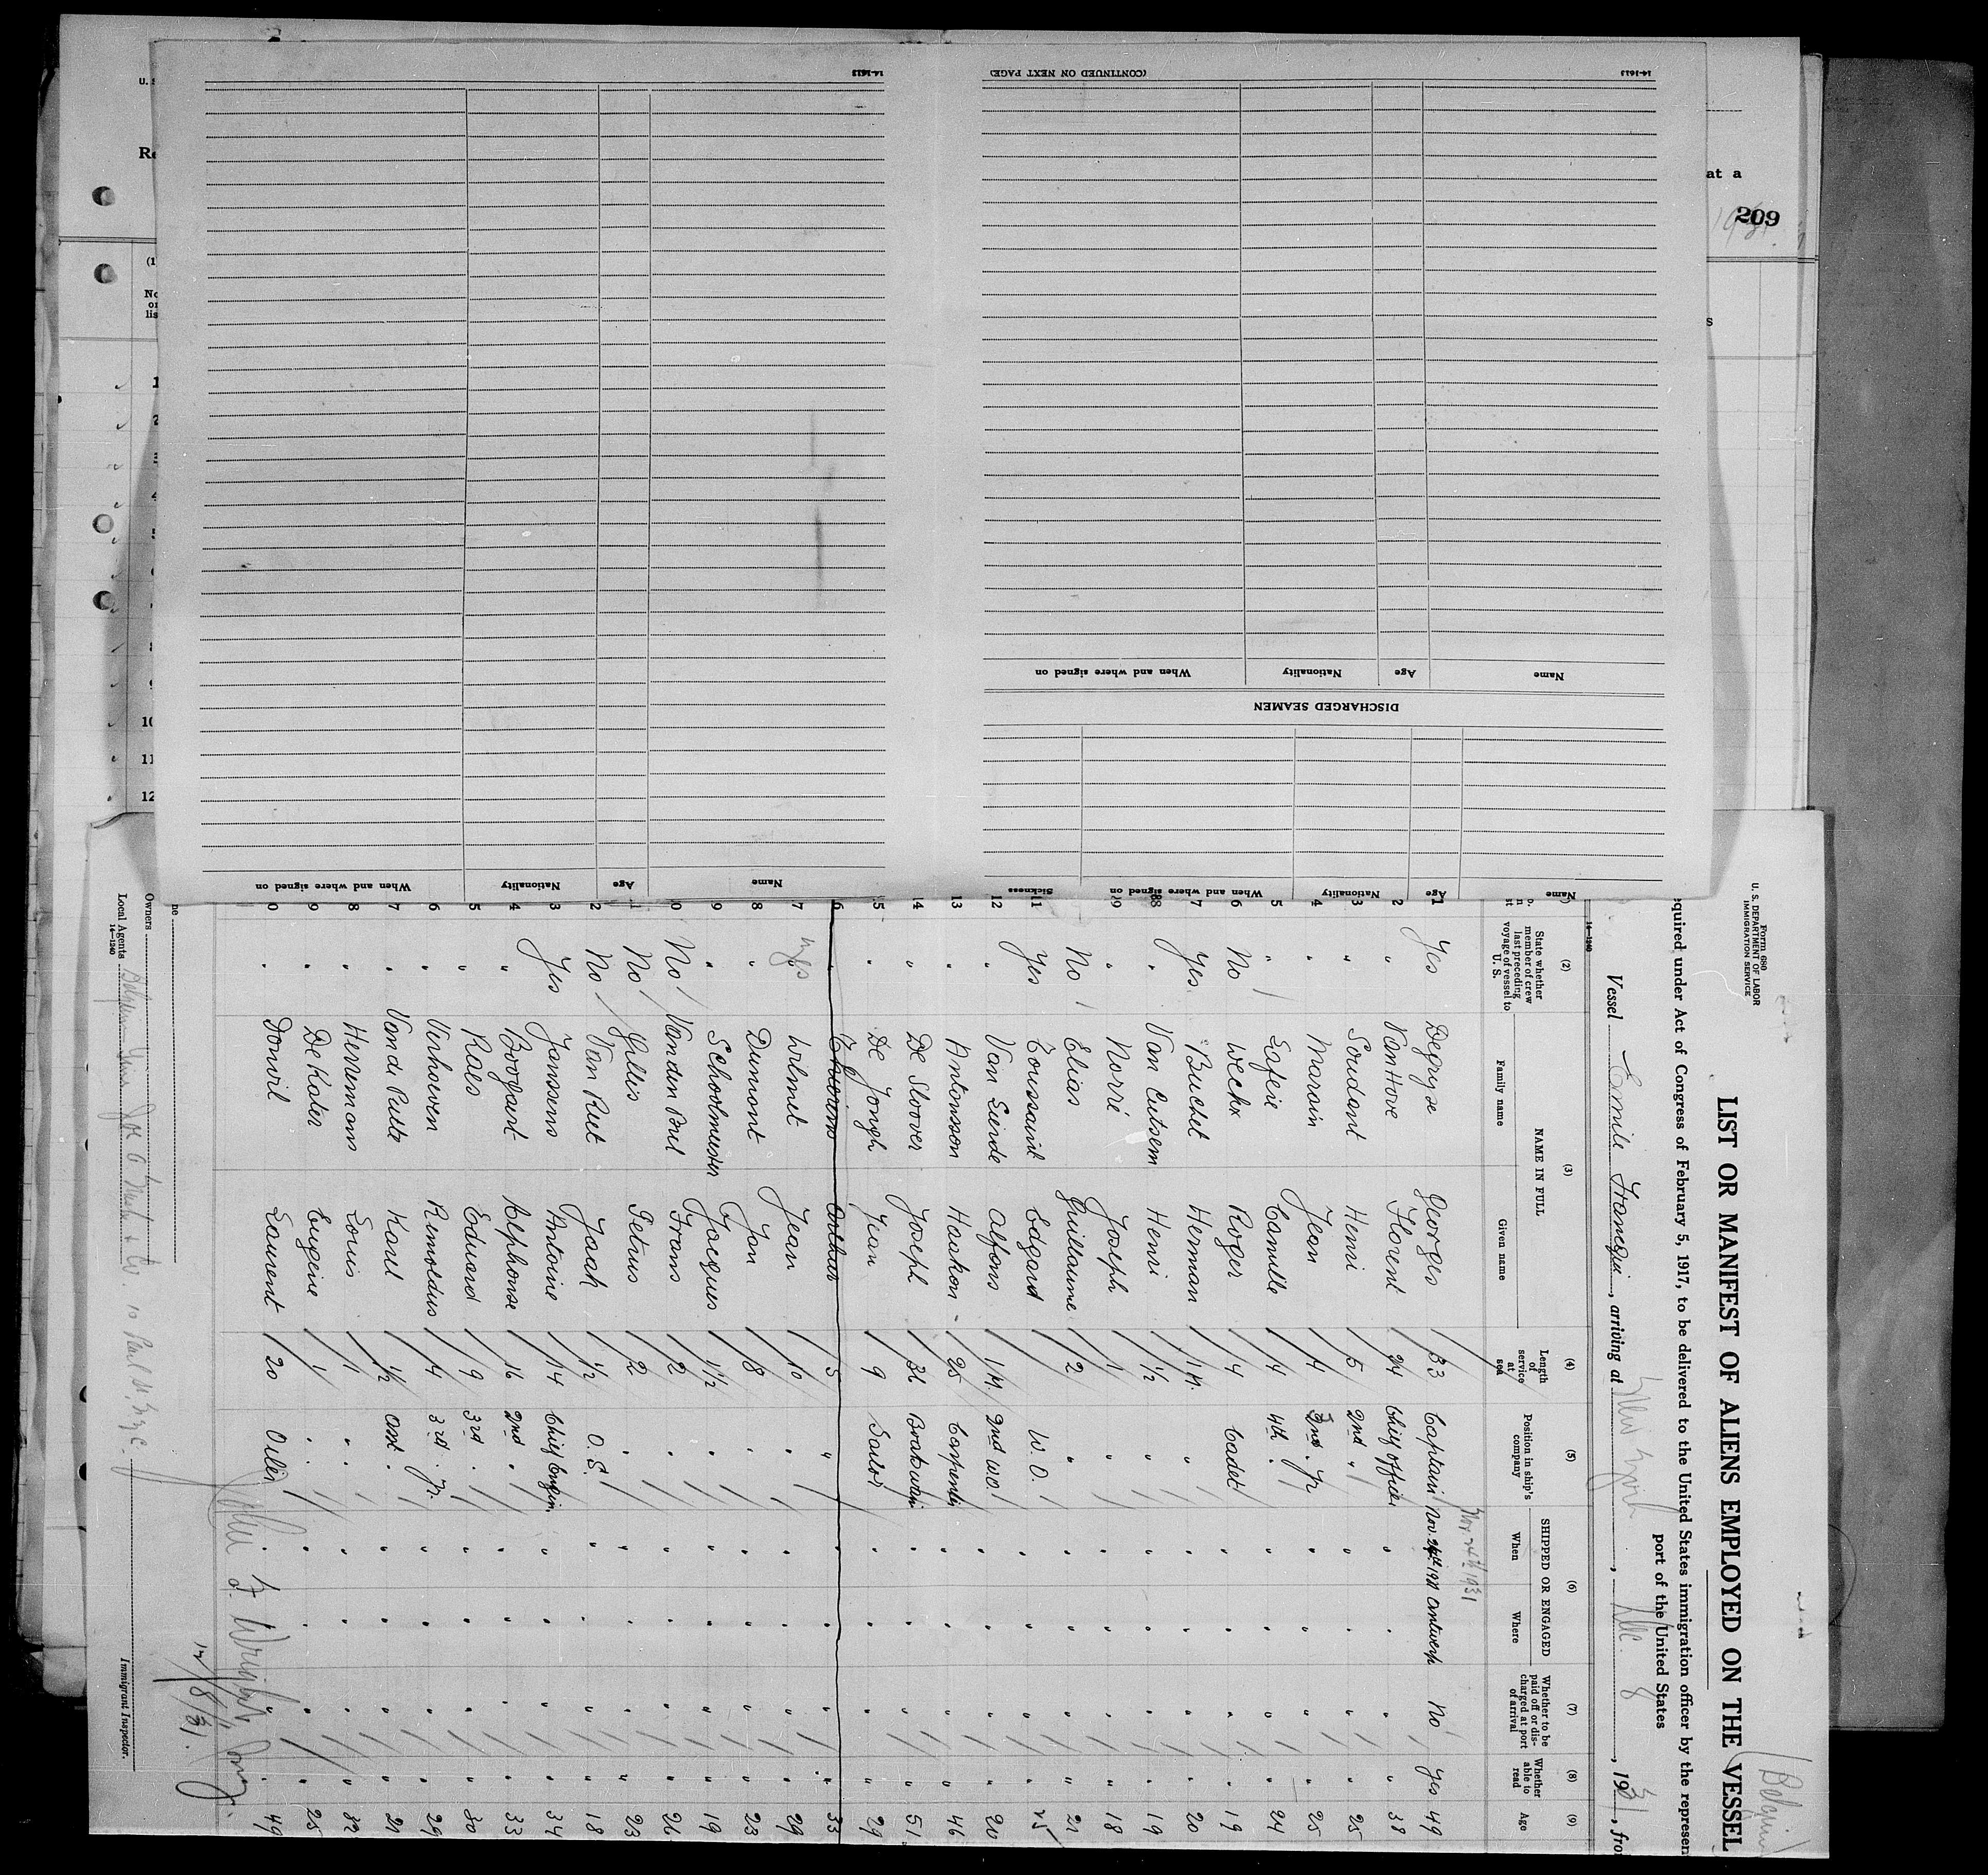 209
at a
U. S.
(CONTINUED ON NEXT PAGE)
14-1613
14-1613
Name
Age
Nationality
When and where signed on
DISCHARGED SEAMEN
Name
Age
Nationality
When and where signed on
Sickness
Name
Age
Nationality
When and where signed on
1
2
3
4
5
10
11
12
Form 680
U. S. DEPARTMENT OF LABOR
IMMIGRATION SERVICE
(Belgium)
LIST OR MANIFEST OF ALIENS EMPLOYED ON THE VESSEL
equired under Act of Congress of February 5, 1917, to be delivered to the United States immigration officer by the represen
port of the United States
Vessel Emile Francqui, arriving at New York, Dec. 8, 1931, fro
14-1240
(2) State whether member of crew last preceding voyage of vessel to U. S.
(3) NAME IN FULL
Family name
Given name
(4) Length of service at sea
(5) Position in ship's company
(6) SHIPPED OR ENGAGED
When
Where
(7) Whether to be paid off or discharged at port of arrival
(8) Whether able to read
(9) Age
Nov. 24th 1931
1 Yes Degryse Georges 33 Captain Nov. 24th 1931 Antwerp No Yes 49
2 " Van Hove Florent 24 Chief Officer " " " " 38
3 " Soudant Henri 5 2nd " " " " " 25
4 " Marsin Jean 4 2nd . Jr " " " " 25
5 " Lafere Camille 4 4th . " " " " 24
6 No Weckx Roger 4 Cadet " " " " 19
7 Yes Buchet Herman 1 M. " " " " " 20
8 " Van Cutsem Henri 1/2 " " " " " 19
9 " Norré Joseph 1 " " " " " 18
No Elias Guillaume 2 " " " " " 21
11 Yes Toussaint Edgard W. O. " " " " 25
12 " Van Linde Alfons 1 M. 2nd W.O. " " " " 20
13 " Antonsson Haakon 25 Carpenter " " " " 46
14 " De Sloover Joseph 36 Boatswain " " " " 51
5 " De Jongh Jean 9 Sailor " " " " 29
6 " Arthur 5 " " " " " 33
7 Yes Wilmet Jean 10 " " " " " 29
8 " Dumont Jan 8 " " " " " 23
9 " Schoolmeester Jacques 1 1/2 " " " " " 19
0 No Vanden Bril Frans 2 " " " " " 26
1 No Gillis Petrus 2 " " " " " 23
2 No Van Riet Jaak 1/2 O. S. " " " " 18
3 Yes Janssens Antoine 14 Chief Engin. " " " " 34
4 " Boogaert Alphonse 16 2nd " " " " " 33
5 " Raes Eduard 9 3rd . " " " " 30
6 " Verhoeven Remoldus 4 3rd . Jr. " " " " 29
7 " Van de Putte Karel 1/2 Asst . " " " " 21
8 " Herremans Louis 1 " " " " " 32
9 " De Kater Eugene 1 " " " " " 25
0 " Donvil Laurent 20 Oiler " " " " 49
John F. Wright
12/8/31.
Immigrant Inspector.
Owners
Local Agents
14-1240